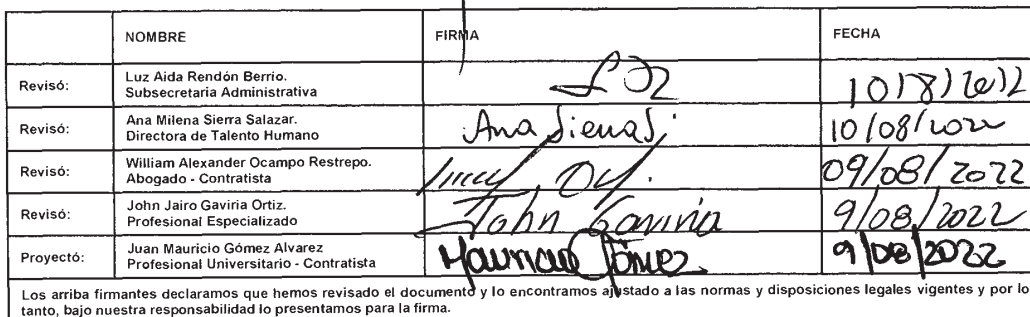 NOMBRE FIRMA FECHA
Revisó: Luz Aida Rendón Berrio.
Subsecretaria Administrativa 10/8/2022
Revisó: Ana Milena Sierra Salazar.
Directora de Talento Humano Ana Sierra S. 10/08/2022
Revisó: William Alexander Ocampo Restrepo.
Abogado - Contratista 09/08/2022
Revisó: John Jairo Gaviria Ortiz.
Profesional Especializado John Gaviria 9/08/2022
Proyectó: Juan Mauricio Gómez Alvarez
Profesional Universitario - Contratista Mauricio Gómez 9/08/2022
Los arriba firmantes declaramos que hemos revisado el documento y lo encontramos ajustado a las normas y disposiciones legales vigentes y por lo
tanto, bajo nuestra responsabilidad lo presentamos para la firma.